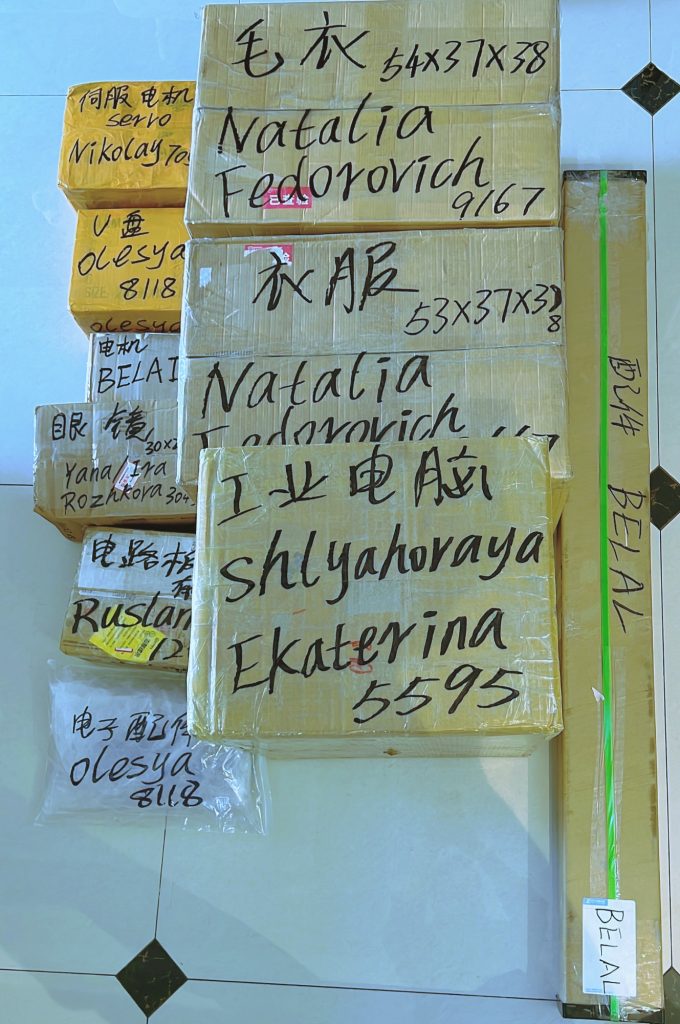 毛衣 54X37X38
Natalia
Fedorovich
9167
伺服电机
servo
Nikolay
U盘
olesya
8118
olesya
衣服
53X37X38
Natalia
Fedorovich
电机
BELAL
眼镜
Yana/Ira
Rozhkova
工业电脑
Shlyahoraya
Ekaterina
5595
电路板
Ruslan
电子配件
olesya
8118
配件 BELAL
BELAL